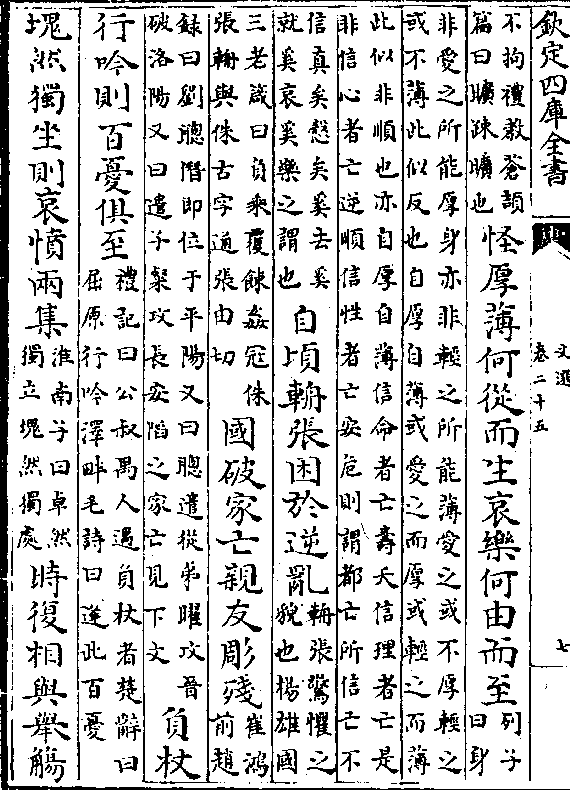 欽定四庫全書
文選
卷二十五
七
不拘禮敎蒼頡
篇曰曠疎曠也
怪厚薄何從而生哀樂何由而至
列子
曰身
非愛之所能厚身亦非輕之所能薄愛之或不厚輕之
或不薄此似反也自厚自薄或愛之而厚或輕之而薄
此似非順也亦自厚自薄信命者亡壽夭信理者亡是
非信心者亡逆順信性者亡安危則謂都亡所信亡不
信真矣愨矣奚去奚
就奚哀奚樂之謂也
自頃輈張困於逆亂
輈張驚懼之
貌也楊雄國
三老箴曰負乗覆餗姦冦侏
張輈與侏古字通張由切
國破家亡親友彫殘
崔鴻
前趙
録曰劉聰僭即位于平陽又曰聰遣從弟曜攻晉
破洛陽又曰遣子粲攻長安陷之家亡見下文
負杖
行吟則百憂俱至
禮記曰公叔禺人遇負杖者楚辭曰
屈原行吟澤畔毛詩曰逢此百憂
塊然獨坐則哀憤兩集
淮南子曰卓然
獨立塊然獨處
時復相與舉觴